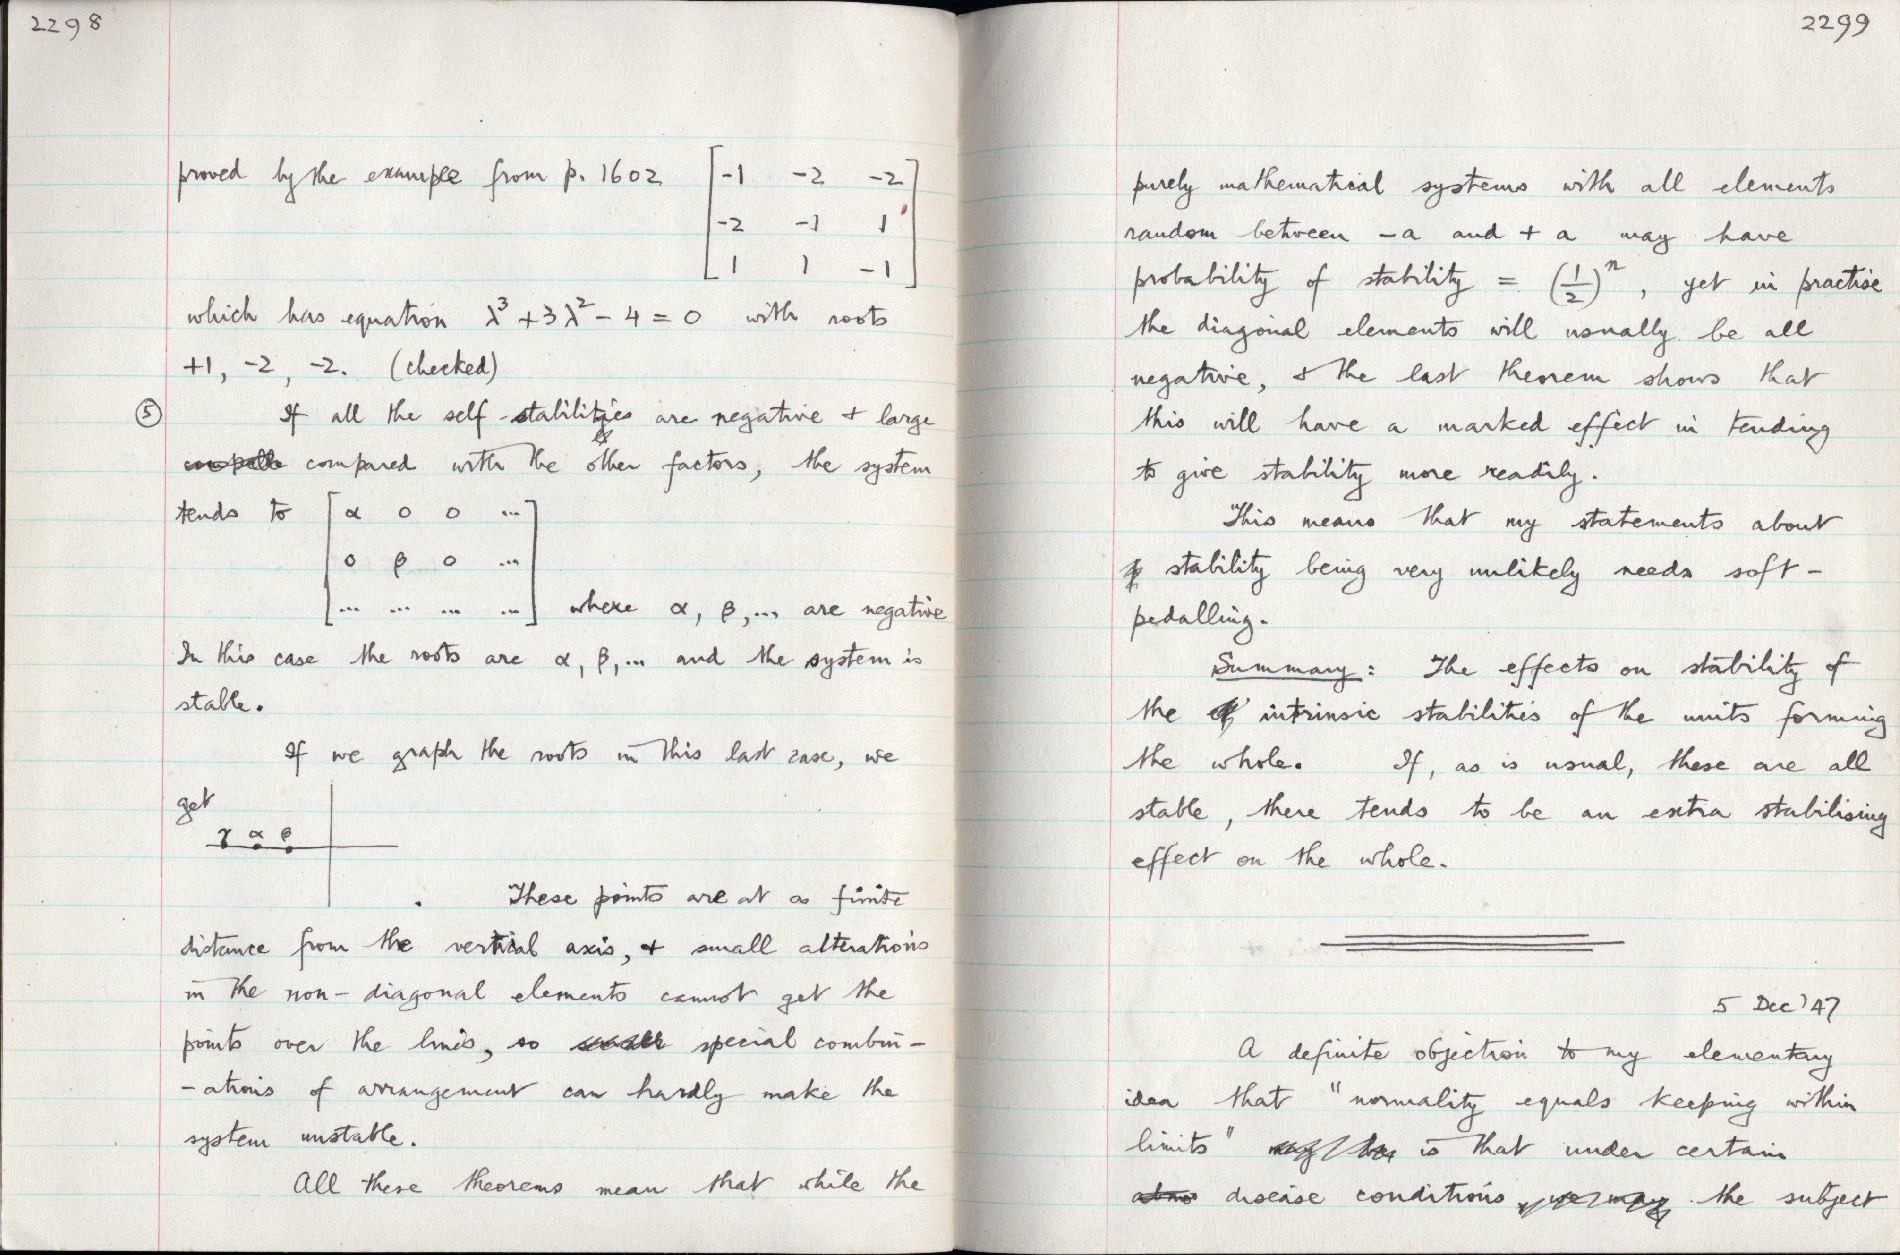 2298
proved by the example from p. 1602 [ -1 -2 -2
-2 -1 1
1 1 -1 ]
which has equation λ³ + 3λ² - 4 = 0 with roots
+1, -2, -2. (checked)
⑤ If all the self-stabilities are negative & large
compared with the other factors, the system
tends to [ α 0 0 ...
0 β 0 ...
... ... ... ... ] where α, β, ... are negative
In this case the roots are α, β, ... and the system is
stable.
If we graph the roots in this last case, we
get
γ α β
. These points are at a finite
distance from the vertical axis, & small alterations
in the non-diagonal elements cannot get the
points over the line, so special combin-
-ations of arrangement can hardly make the
system unstable.
All these theorems mean that while the
2299
purely mathematical systems with all elements
random between -a and +a may have
probability of stability = (1/2)ⁿ, yet in practise
the diagonal elements will usually be all
negative, & the last theorem shows that
this will have a marked effect in tending
to give stability more readily.
This means that my statements about
stability being very unlikely needs soft-
pedalling.
Summary: The effects on stability of
the intrinsic stabilities of the units forming
the whole. If, as is usual, these are all
stable, there tends to be an extra stabilising
effect on the whole.
5 Dec '47
A definite objection to my elementary
idea that "normality equals keeping within
limits" is that under certain
disease conditions the subject